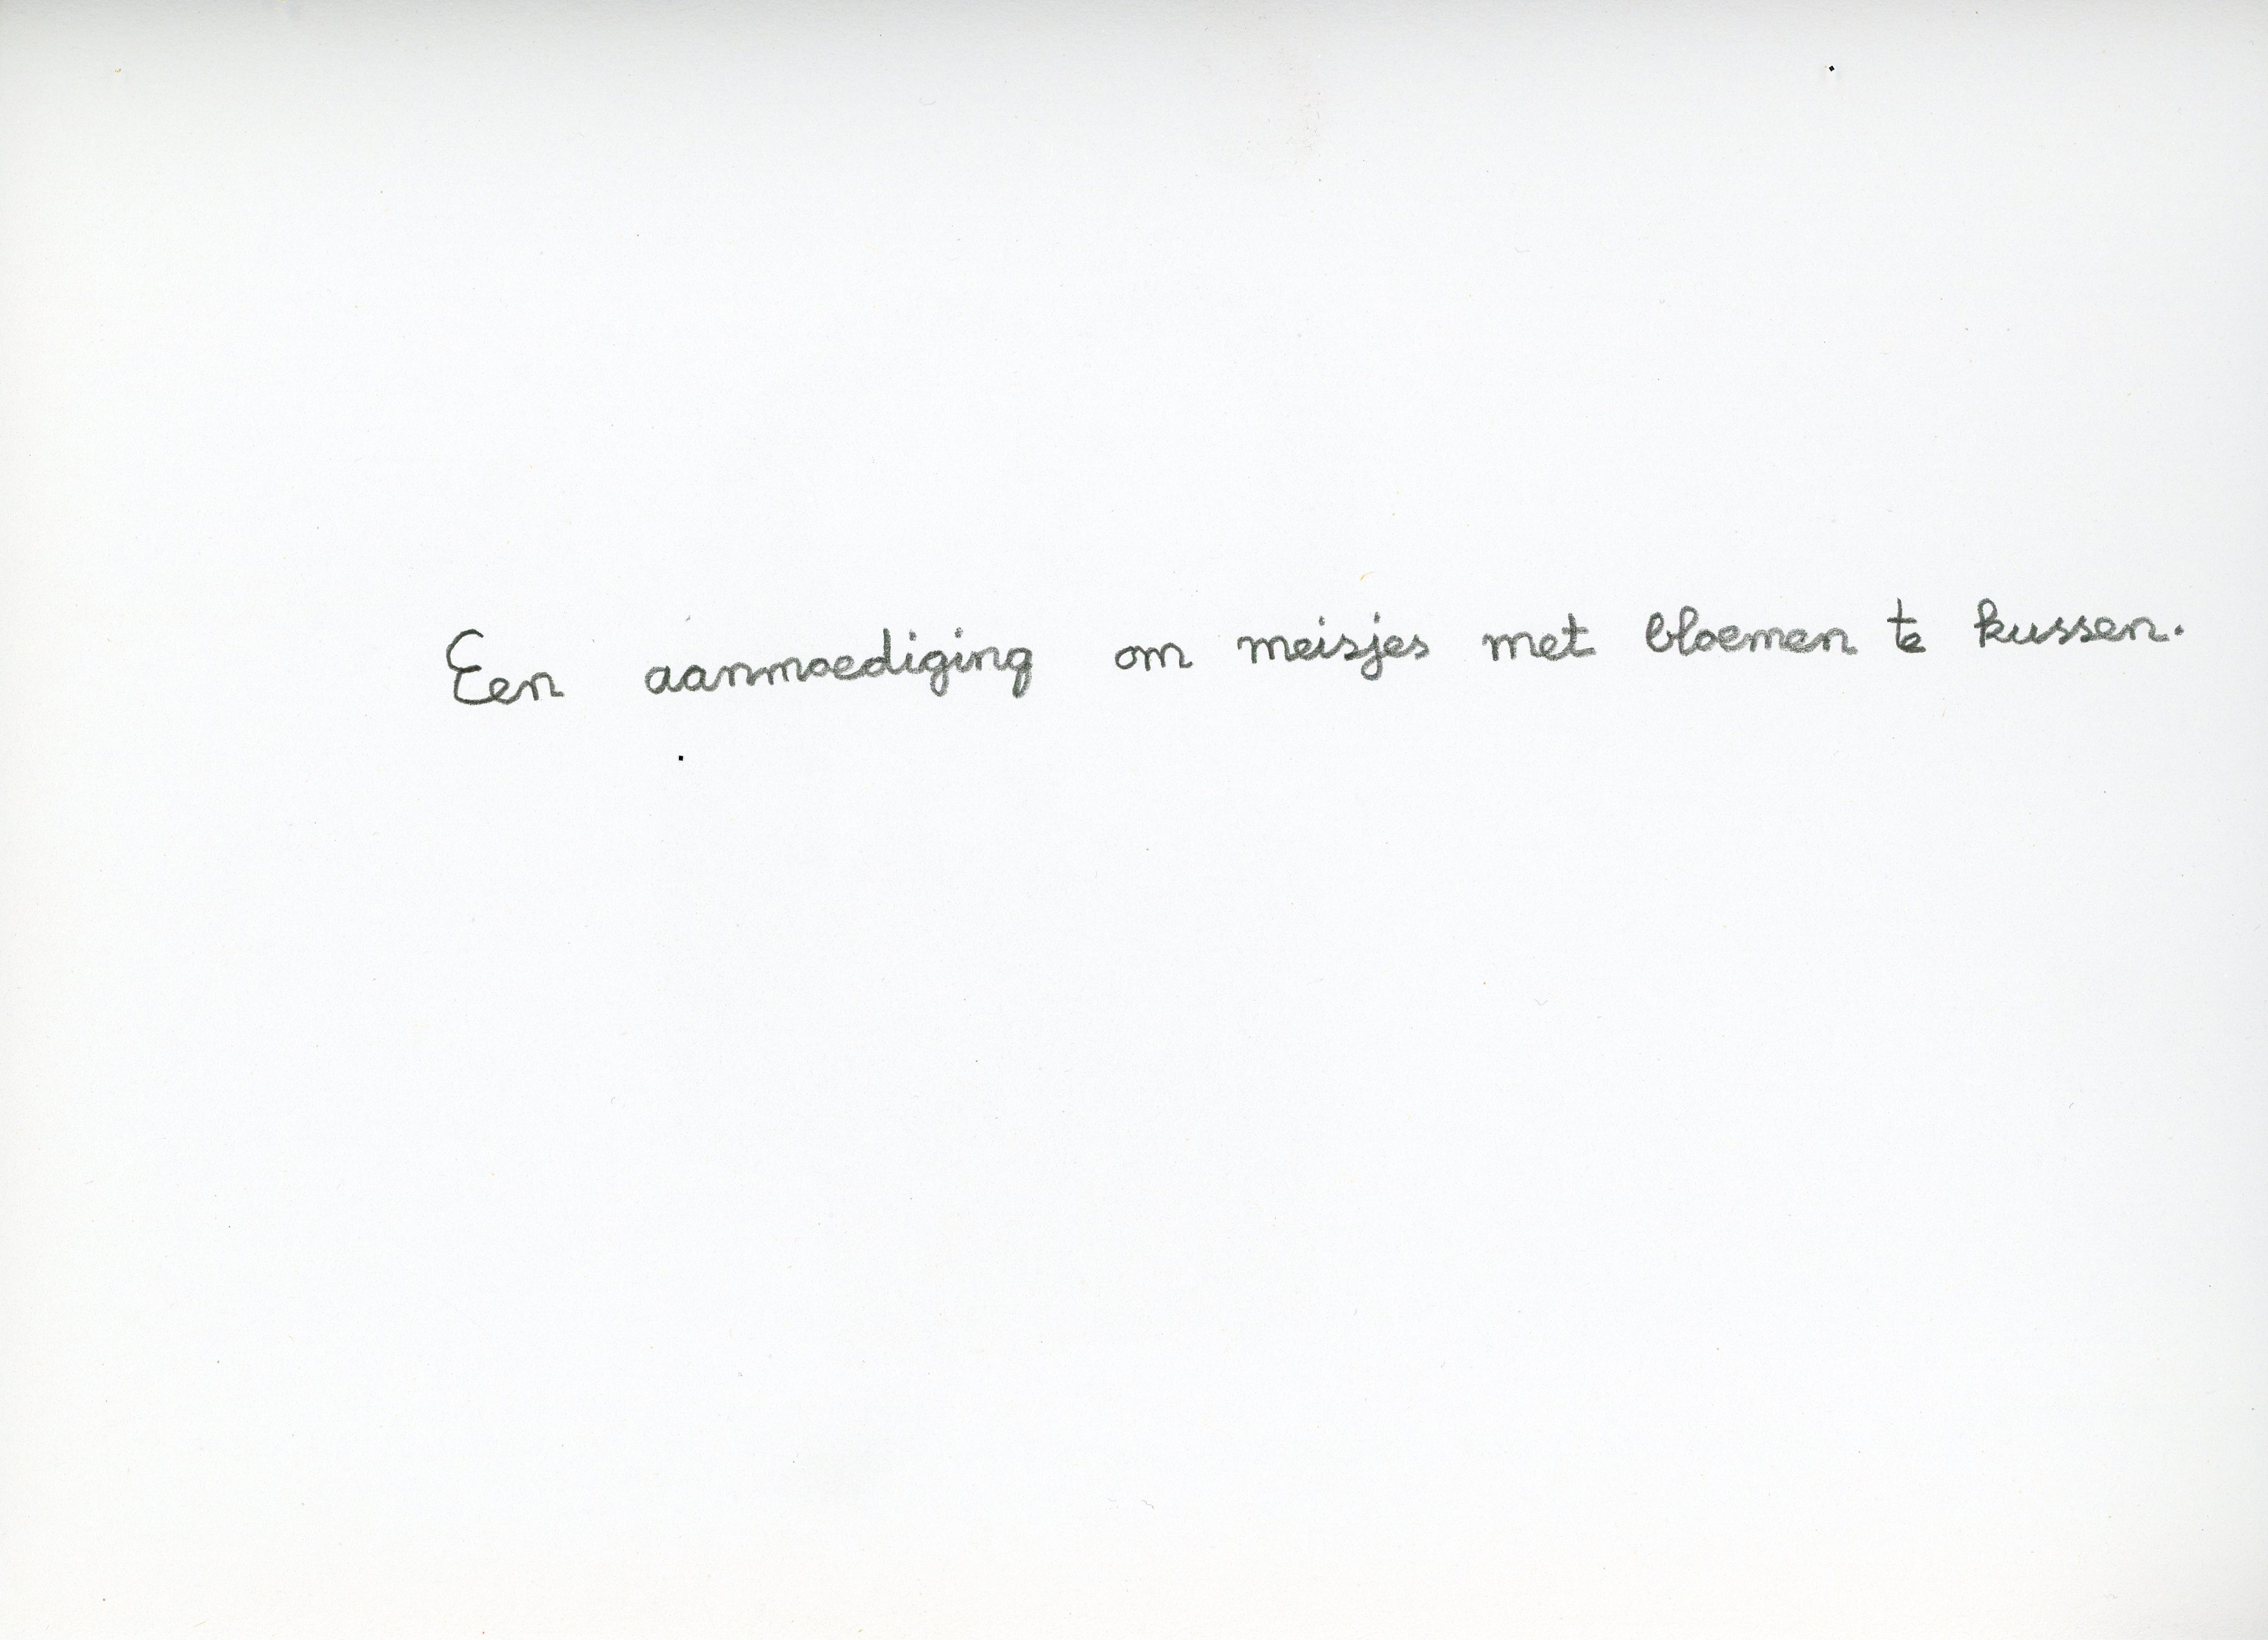 Een aanmoediging om meisjes met bloemen te kussen.